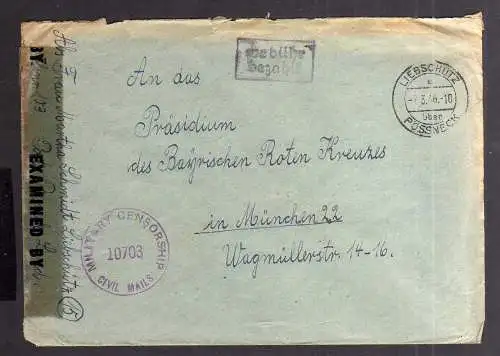 Gebühr
bezahlt
LIEBSCHÜTZ
über
PÖSSNECK
An das
Präsidium
des Bayrischen Roten Kreuzes
in München 22
Wagmüllerstr. 14-16.
MILITARY CENSORSHIP
10703
CIVIL MAILS
BY
EXAMINED BY